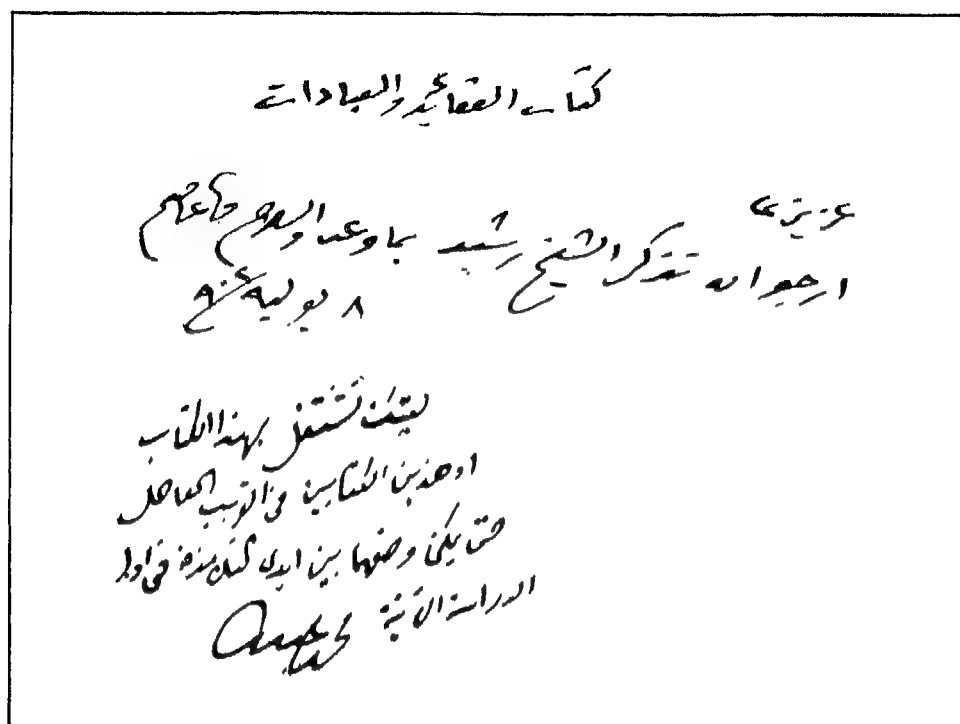 كتاب العقائد والعبادات
عزيزي
ارجو ان تذكر الشيخ رشيد بما وعد والسلام
٨ يوليه
ليتك تشتغل بهذا الكتاب
او هذين الكتابين في القريب العاجل
حتى يمكن وضعهما بين ايدي التلامذة في اول
الدراسة الآتية محمد عبده